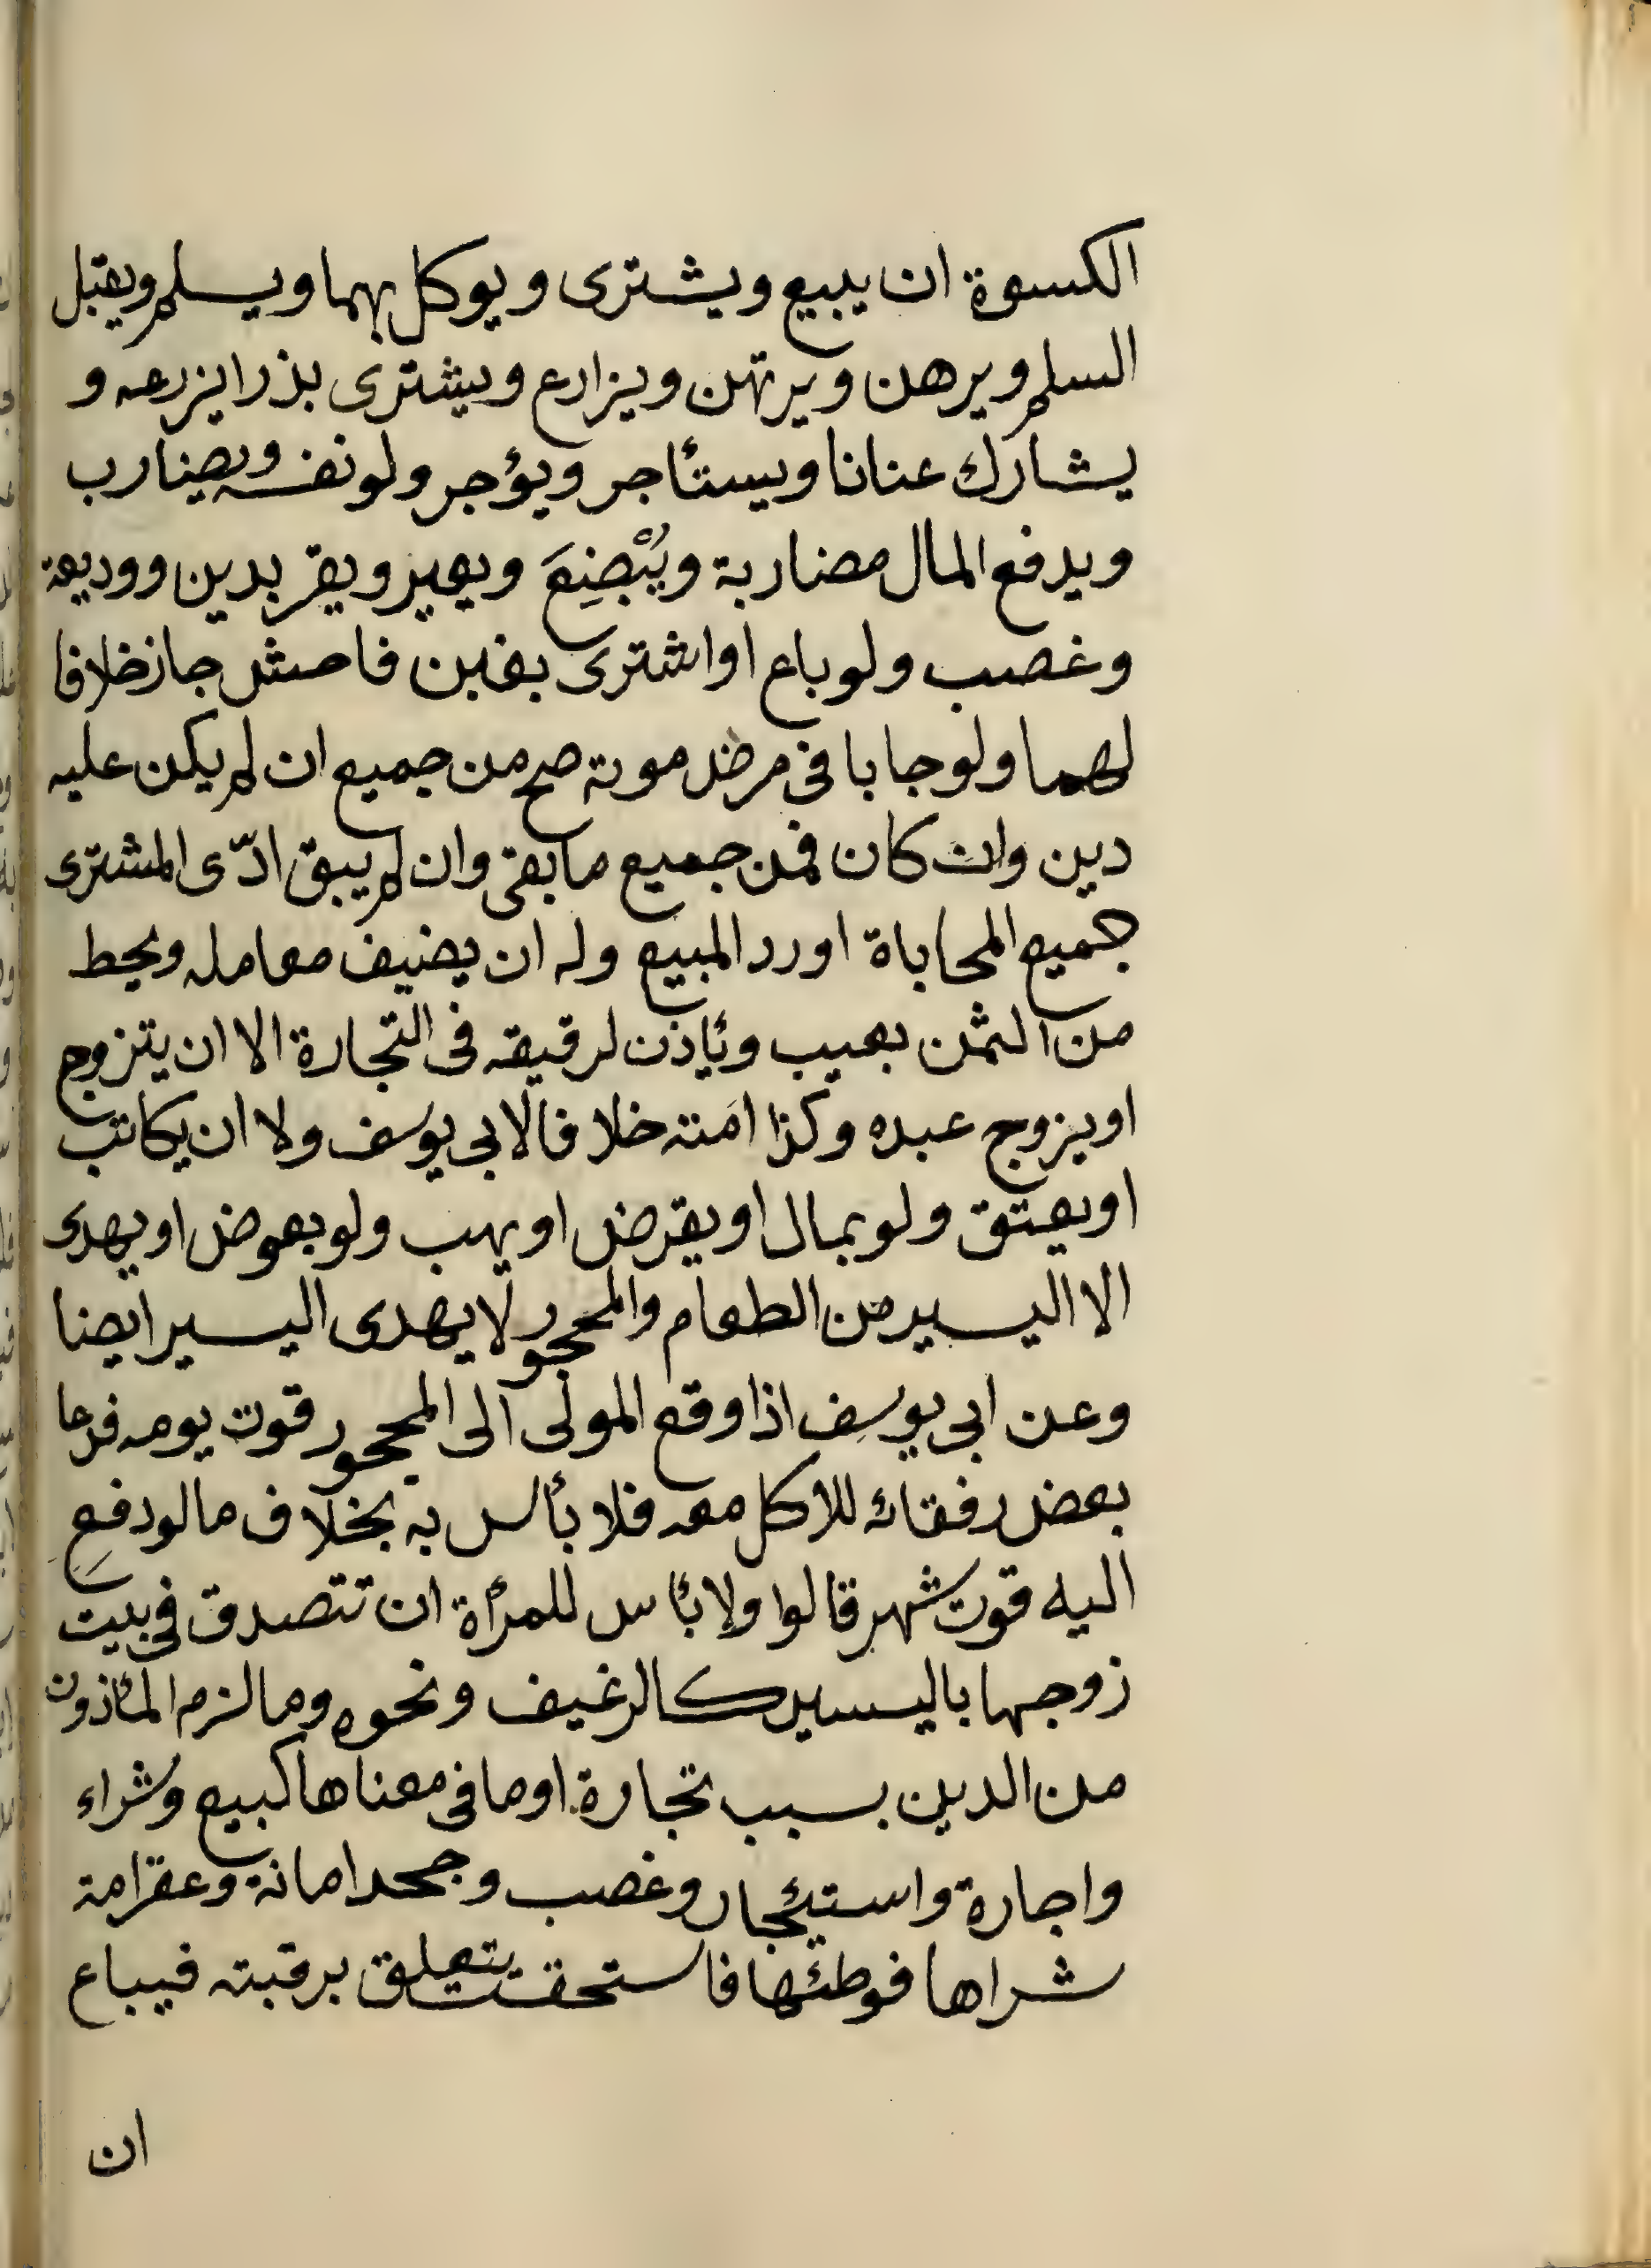 الكسوة ان يبيع ويشترى ويوكل بهما ويسلم ويقبل
السلم ويرهن ويرتهن ويزارع ويشترى بذرا يزرعه و
يشارك عنانا ويستئاجر ويؤجر ولو نفسه ويضارب
ويدفع المال مضاربة ويُبْضِعَ ويعير ويقر بدين ووديعة
وغصب ولو باع او اشترى بغبن فاحش جاز خلافا
لهما ولو حابا فى مرض موته صح من جميع ان لم يكن عليه
دين وان كان فمن جميع ما بقى وان لم يبق ادّى المشترى
جميع المحاباة او رد المبيع وله ان يضيف معامله ويحط
من الثمن بعيب وئاذن لرقيقه فى التجارة الا ان يتزوج
او يزوج عبده وكذا امَته خلافا لابى يوسف ولا ان يكاتب
او يعتق ولو بمال او يقرض او يهب ولو بعوض او يهدى
الا اليسير من الطعام والمحجور لا يهدى اليسير ايضا
وعن ابى يوسف اذا وقع المولى الى المحجور قوت يومه فدعا
بعض رفقائه للاكل معه فلا بأس به بخلاف ما لو دفع
اليه قوت شهر قالوا ولا بٔاس للمرأة ان تتصدق فى بيت
زوجها باليسير كالرغيف ونحوه وما لزم المٔاذون
من الدين بسبب تجارة او ما فى معناها كبيع وشراء
واجارة واستئجار وغصب وجحد امانة وعقر امة
شراها فوطئها فاستحقت يتعلق برقبته فيباع
ان